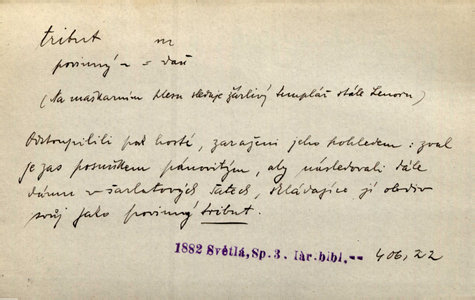 tribut m
povinný ~ = daň
(Na maškarním plesu sleduje žárlivý templář stále Lenoru)
Odstoupilili pak hosté, zaraženi jeho pohledem: zval
je zas posuňkem pánovitým, aby následovali dále
dámu v šarlatových šatech, skládajíce jí obdiv
svůj jako povinný tribut.
1882 Světlá, Sp. 3. Lar. bibl. -- 406, 22